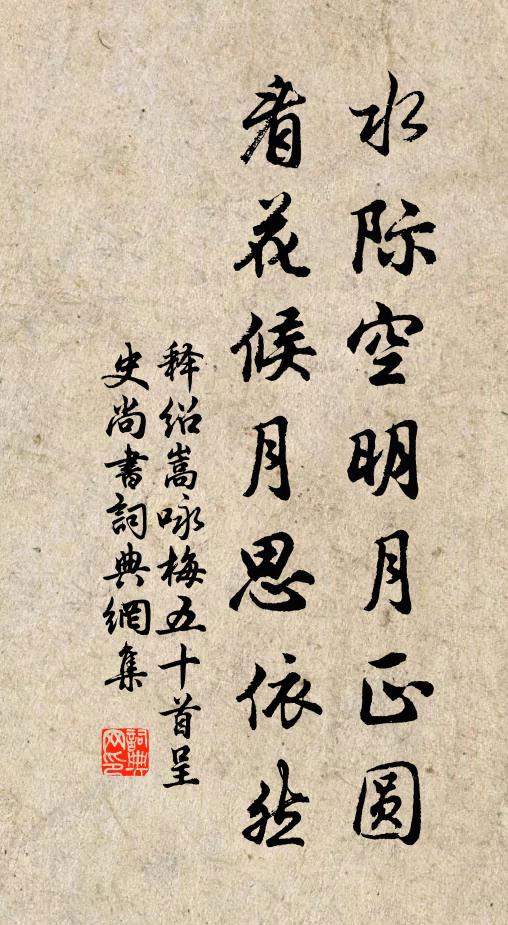 水际空明月正圆
看花候月思依然
释绍嵩咏梅五十首呈
史尚书詞典網集
詞典
网印